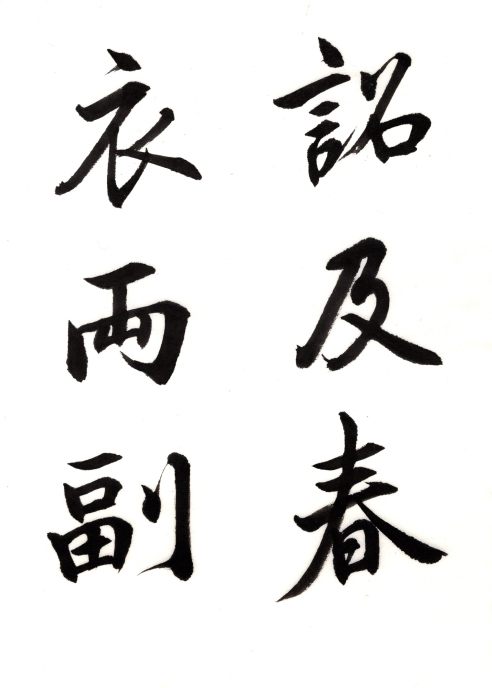 詔及春
衣両副